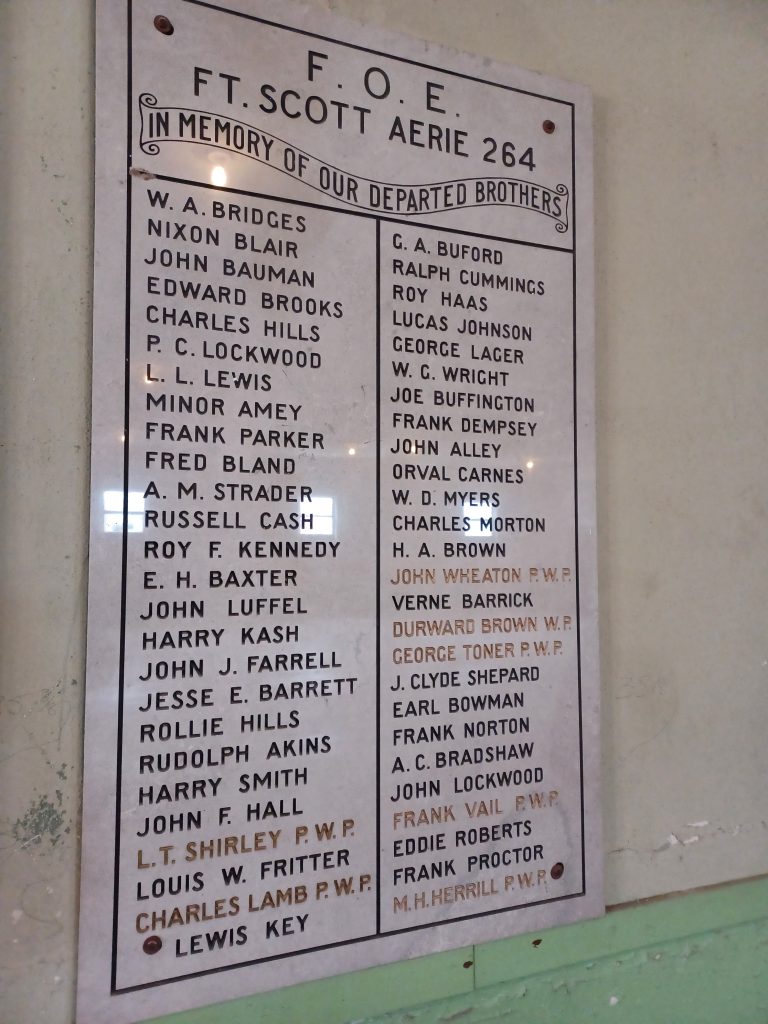 F. O. E.
FT. SCOTT AERIE 264
IN MEMORY OF OUR DEPARTED BROTHERS
W. A. BRIDGES
NIXON BLAIR
JOHN BAUMAN
EDWARD BROOKS
CHARLES HILLS
P. C. LOCKWOOD
L. L. LEWIS
MINOR AMEY
FRANK PARKER
FRED BLAND
A. M. STRADER
RUSSELL CASH
ROY F. KENNEDY
E. H. BAXTER
JOHN LUFFEL
HARRY KASH
JOHN J. FARRELL
JESSE E. BARRETT
ROLLIE HILLS
RUDOLPH AKINS
HARRY SMITH
JOHN F. HALL
L.T. SHIRLEY P.W.P.
LOUIS W. FRITTER
CHARLES LAMB P.W.P.
LEWIS KEY
G. A. BUFORD
RALPH CUMMINGS
ROY HAAS
LUCAS JOHNSON
GEORGE LAGER
W. G. WRIGHT
JOE BUFFINGTON
FRANK DEMPSEY
JOHN ALLEY
ORVAL CARNES
W. D. MYERS
CHARLES MORTON
H. A. BROWN
JOHN WHEATON P.W.P.
VERNE BARRICK
DURWARD BROWN W.P.
GEORGE TONER P.W.P.
J. CLYDE SHEPARD
EARL BOWMAN
FRANK NORTON
A. C. BRADSHAW
JOHN LOCKWOOD
FRANK VAIL P.W.P.
EDDIE ROBERTS
FRANK PROCTOR
M.H. HERRILL P.W.P.